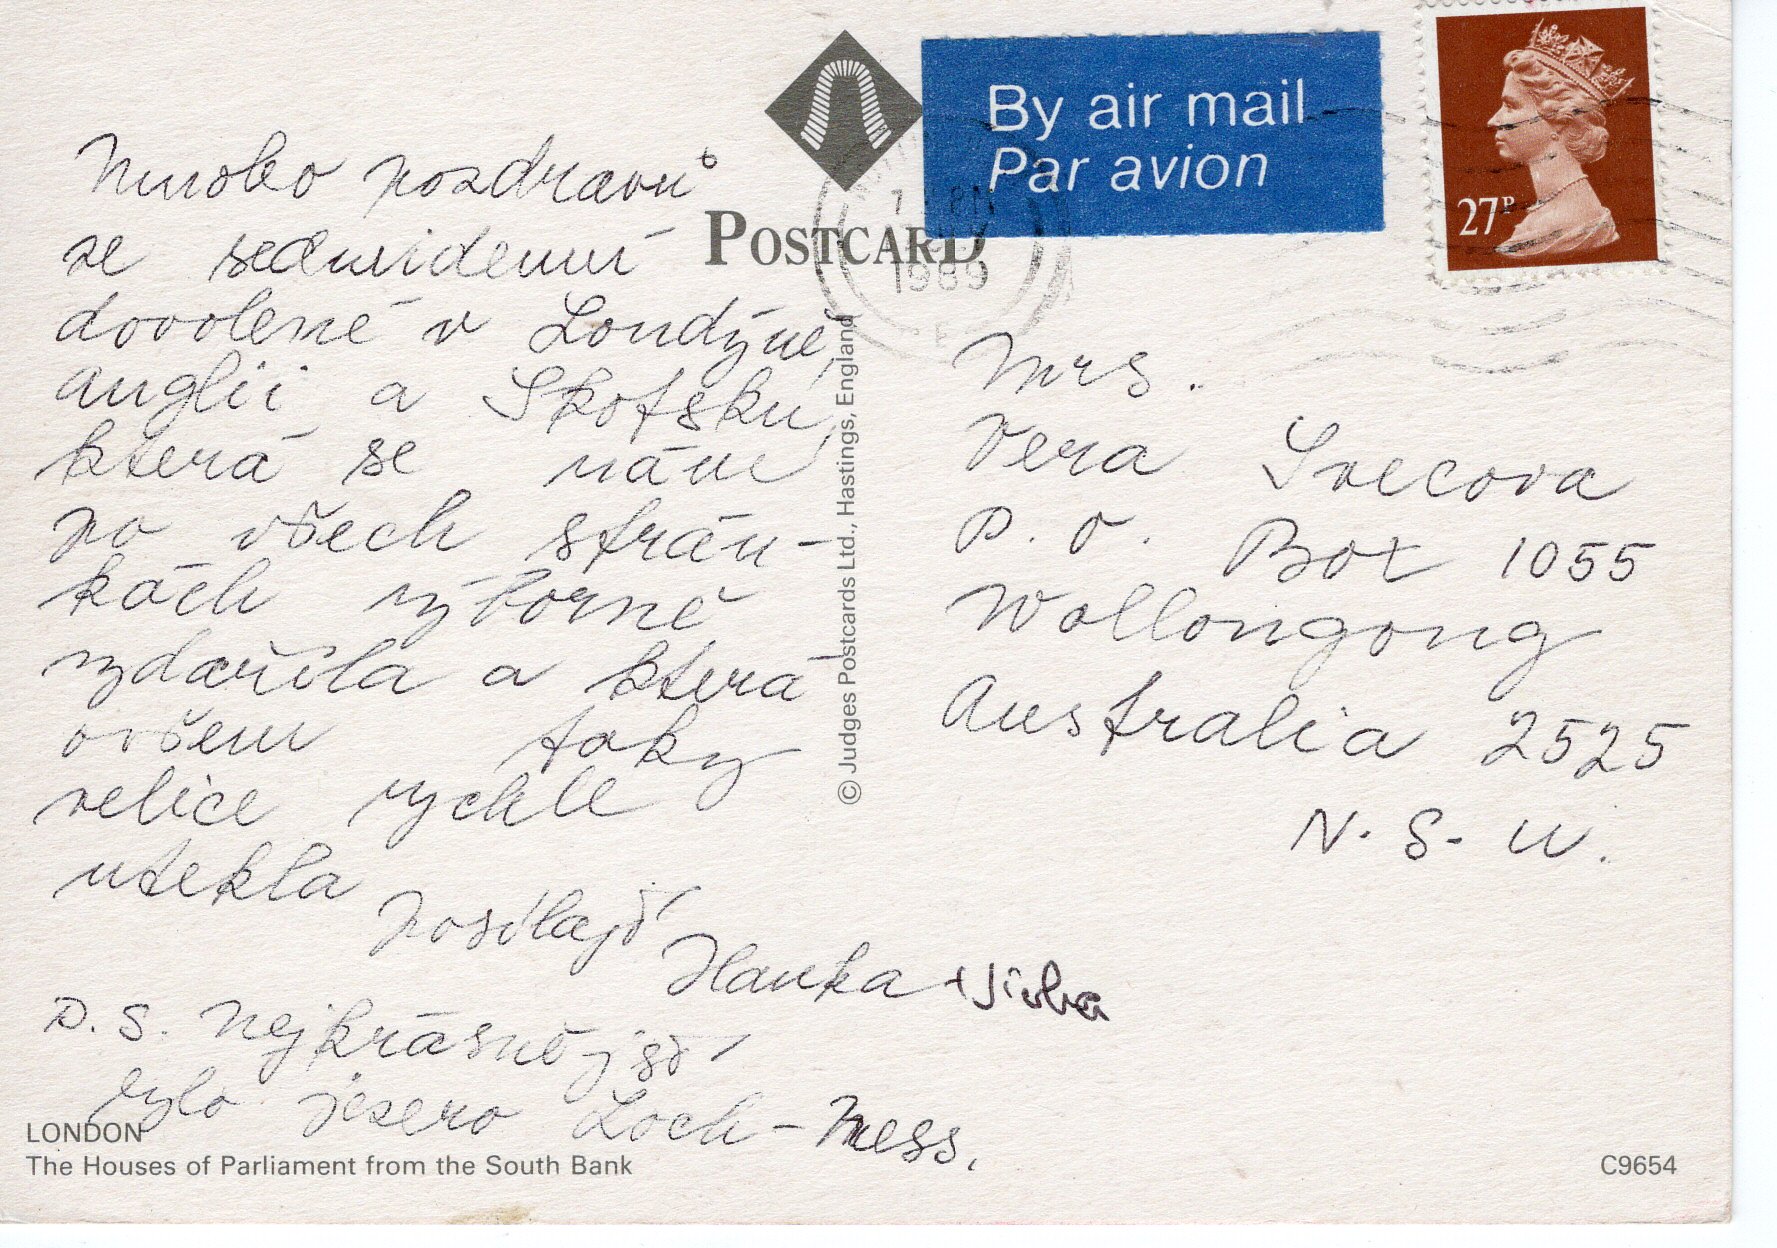 Mnoho pozdravů
se sedmidenní
dovolené v Londýně,
Anglii a Skotsku,
která se nám
po všech strán-
kách výborně
vydařila a která
ovšem taky
velice rychle
utekla
posílají
Hanka + Jirka
P.S. Nejkrásnější
bylo jezero Loch-Ness.
LONDON
The Houses of Parliament from the South Bank
POSTCARD
© Judges Postcards Ltd., Hastings, England
By air mail
Par avion
27P
PM
1989
Mrs.
Vera Svecova
P.O. Box 1055
Wollongong
Australia 2525
N.S.W.
C9654